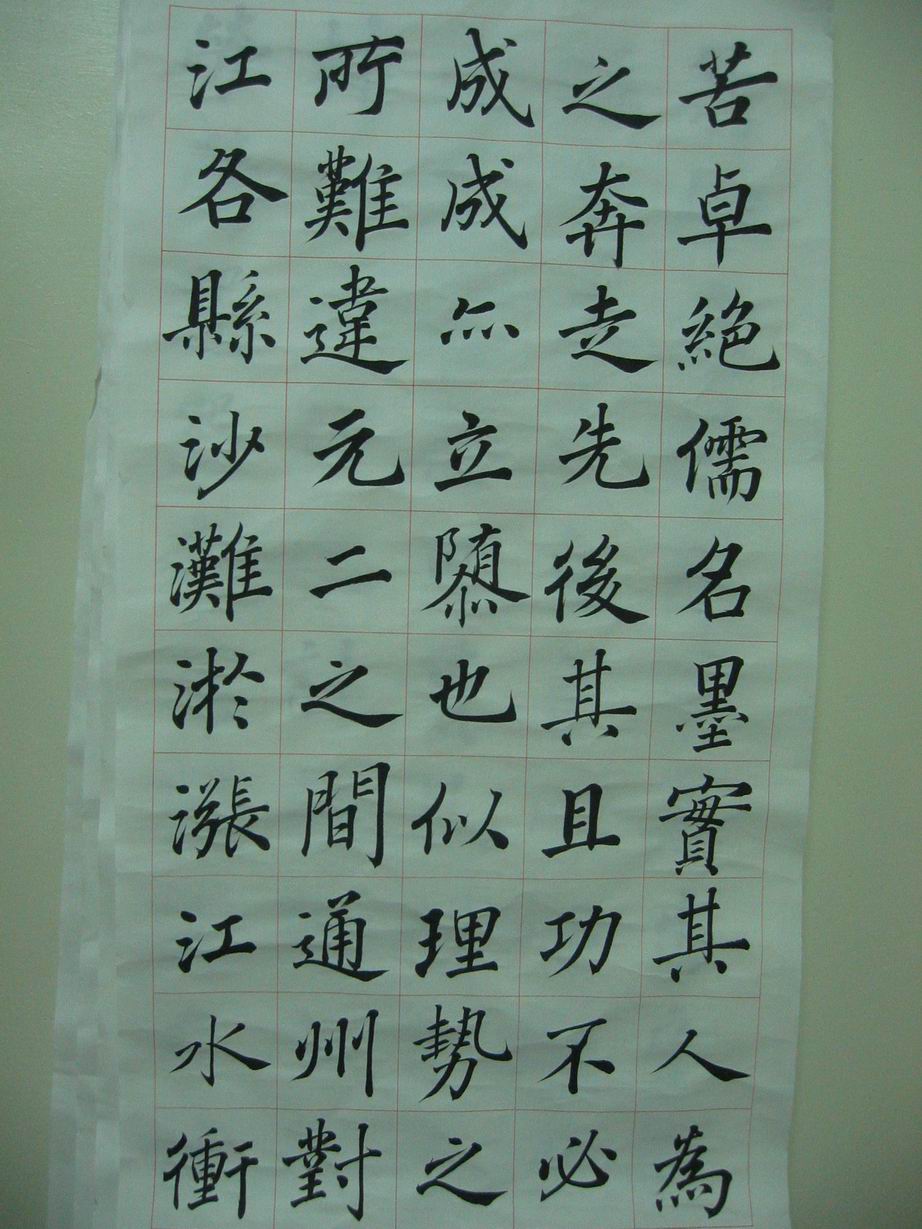 苦卓絕儒名墨實其人為
之奔走先後其且功不必
成成亦立隳也似理勢之
所難違元二之間通州對
江各縣沙灘淤漲江水衝